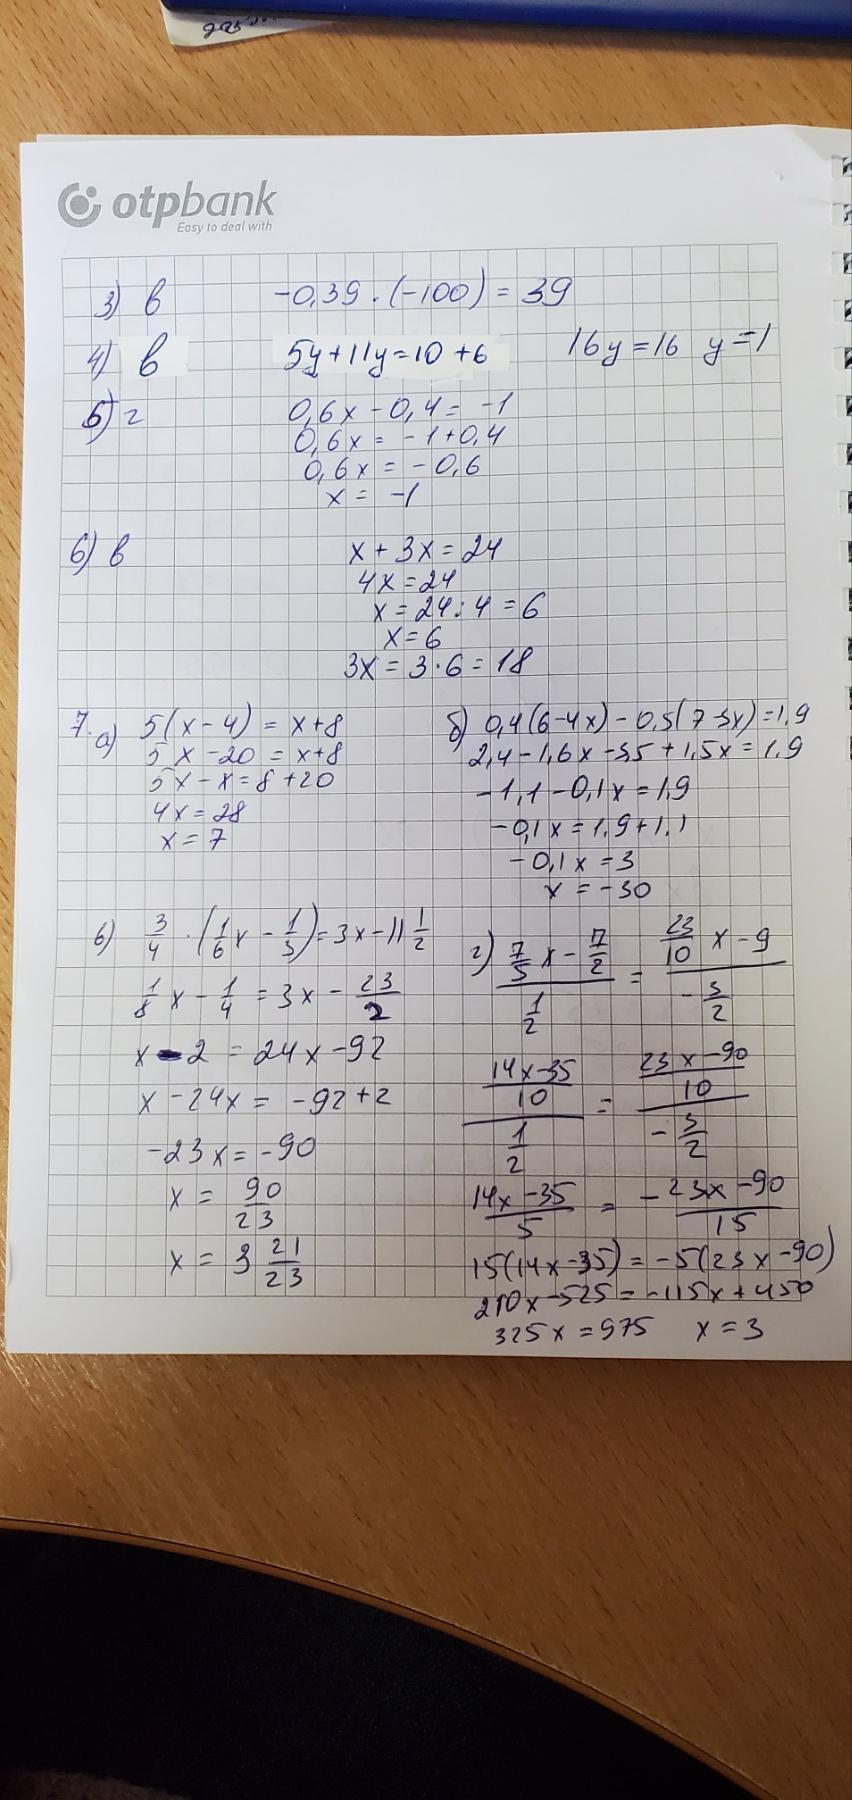 otpbank
Easy to deal with
3) в -0,39 · (-100) = 39
4) в 5y+11y=10+6 16y=16 y=1
5) г 0,6x-0,4= -1
0,6x = -1+0,4
0,6x = -0,6
x = -1
6) в x + 3x = 24
4x = 24
x = 24:4 = 6
x=6
3x = 3·6 = 18
7. а) 5(x-4) = x+8
5x-20 = x+8
5x-x=8+20
4x=28
x=7
б) 0,4(6-4x)-0,5(7-3x)=1,9
2,4-1,6x-3,5+1,5x=1,9
-1,1-0,1x=1,9
-0,1x=1,9+1,1
-0,1x=3
x=-30
в) 3/4 · (1/6x - 1/3) = 3x-11 1/2
1/8x - 1/4 = 3x - 23/2
x-2 = 24x-92
x-24x = -92+2
-23x = -90
x = 90/23
x = 3 21/23
г) (7/5x - 7/2)/(1/2) = (23/10x - 9)/(-3/2)
((14x-35)/10)/(1/2) = ((23x-90)/10)/(-3/2)
(14x-35)/5 = -(23x-90)/15
15(14x-35) = -5(23x-90)
210x-525=-115x+450
325x=975 x=3